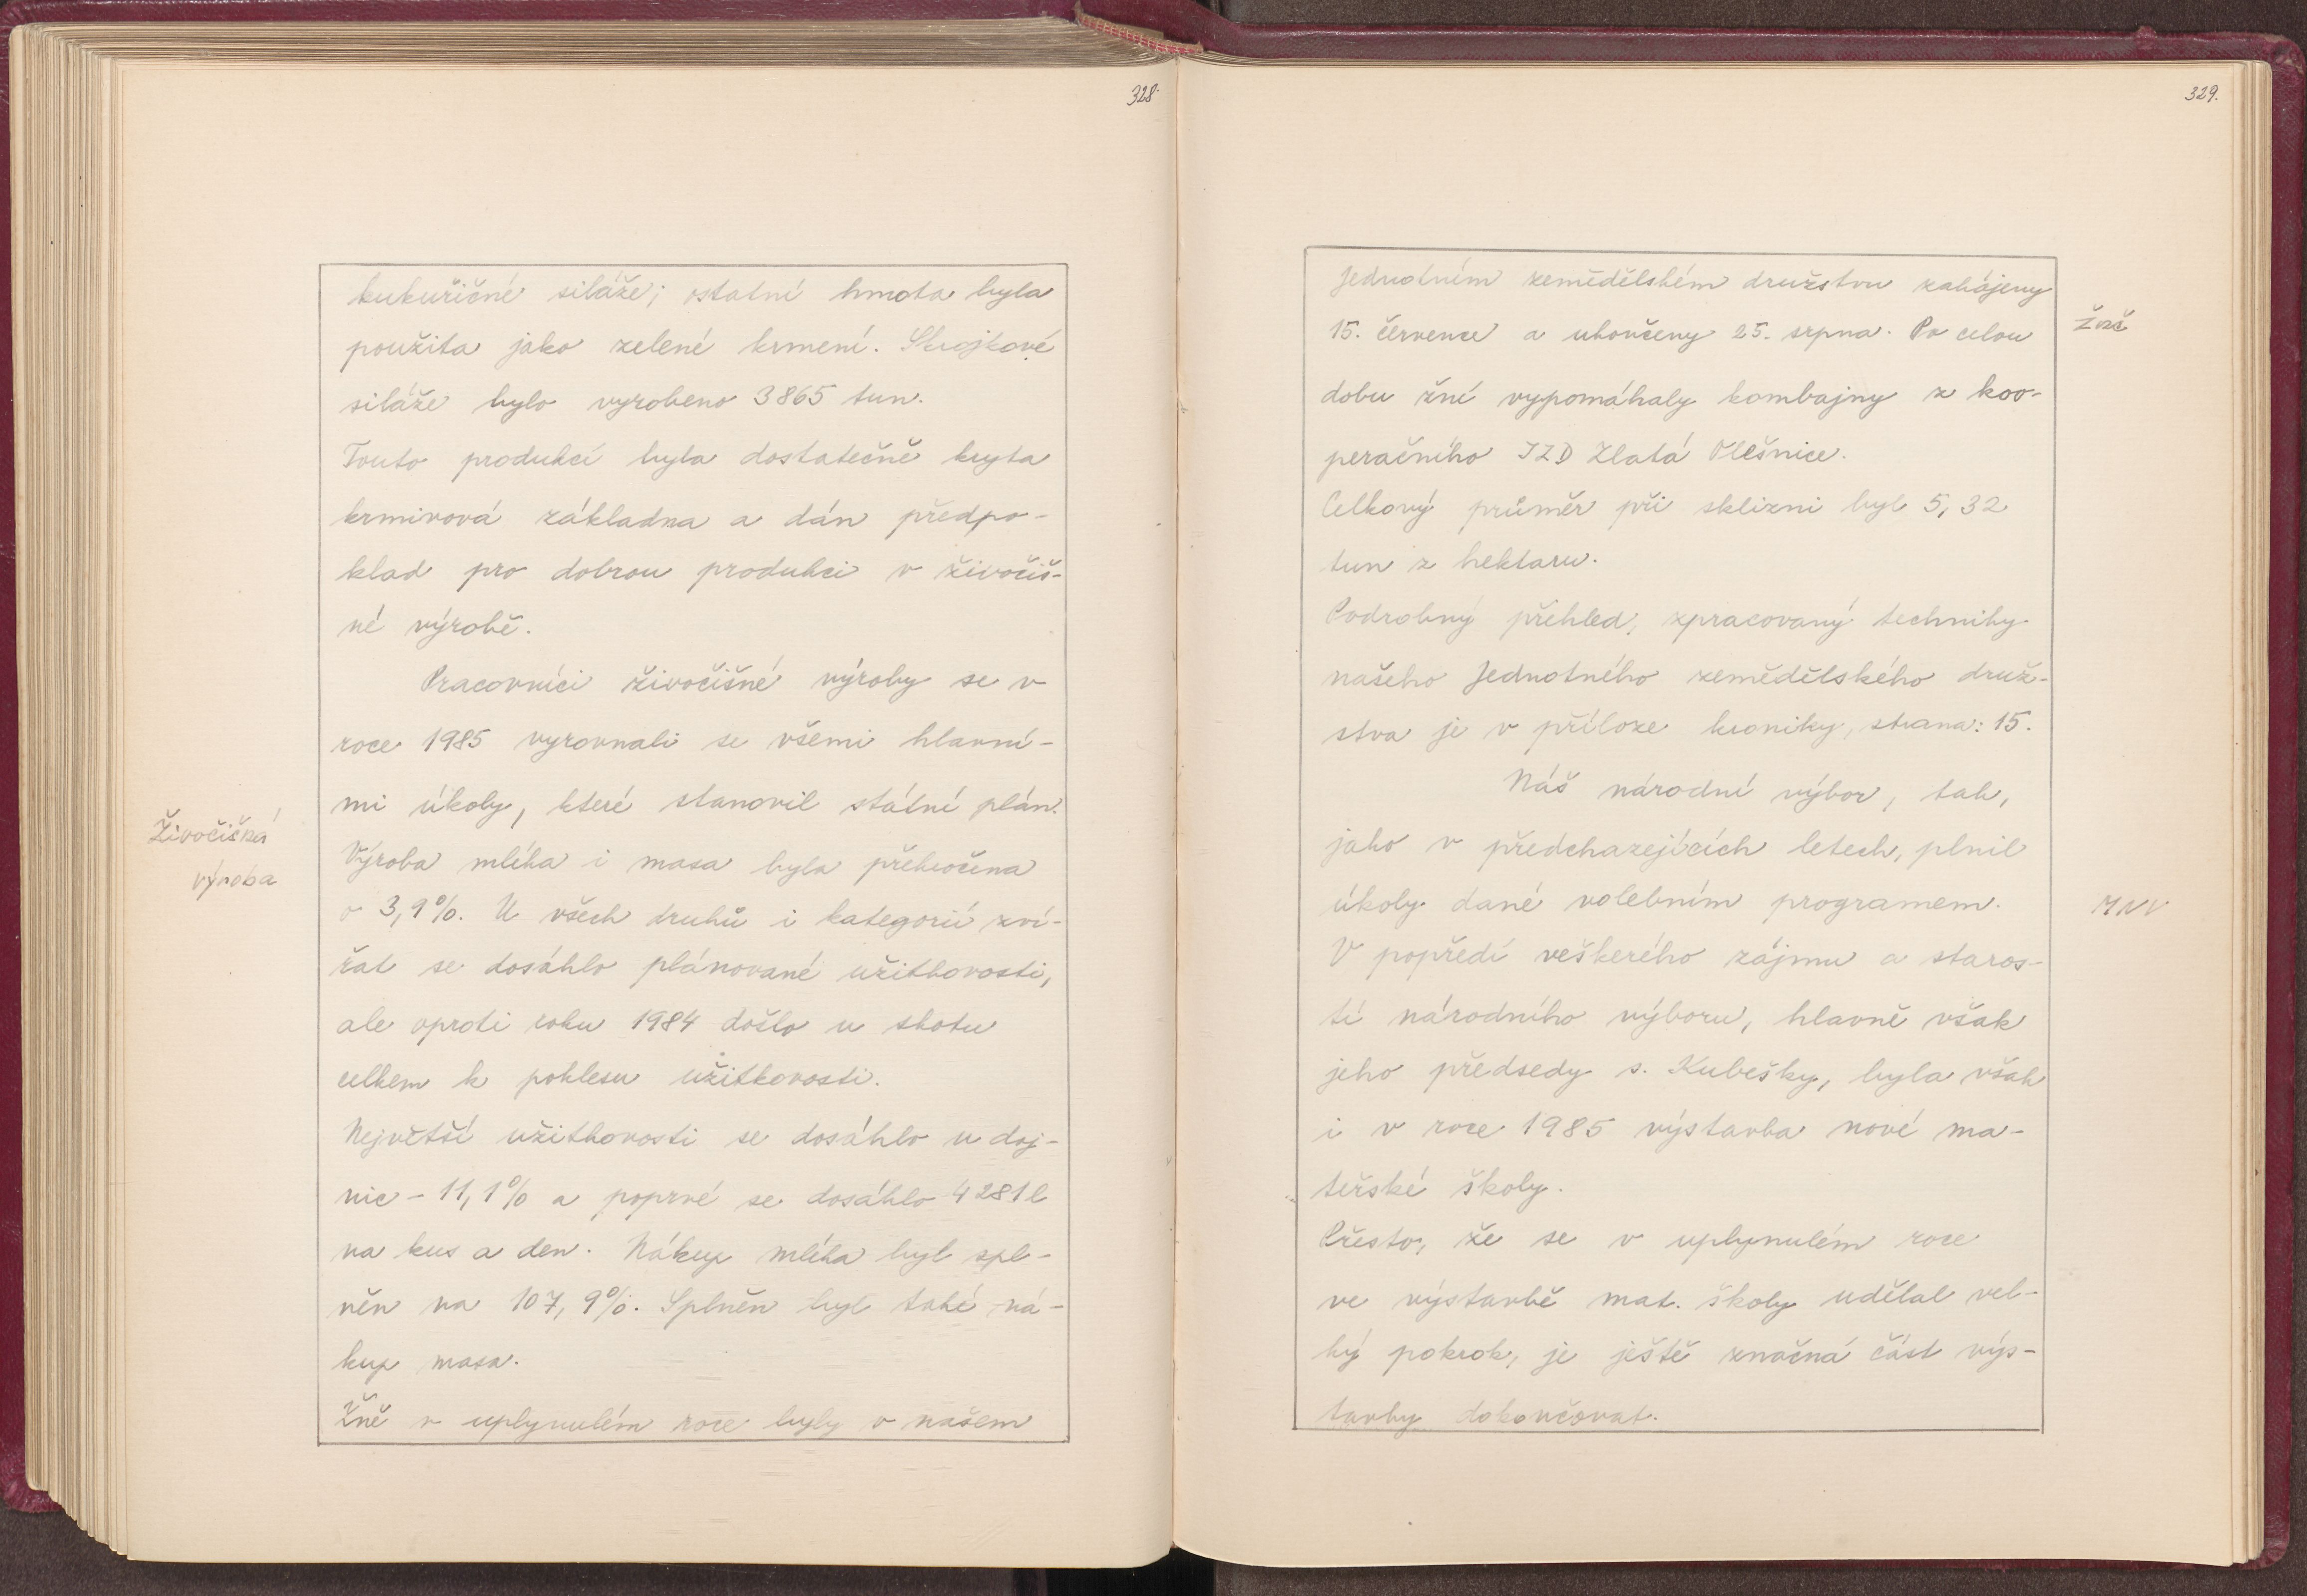 328.
kukuřičné siláže; ostatní hmota byla
použita jako zelené krmení. Skrojkové
siláže bylo vyrobeno 3865 tun.
Touto produkcí byla dostatečně kryta
krmivová základna a dán předpo-
klad pro dobrou produkci v živočiš-
né výrobě.
Pracovníci živočišné výroby se v
roce 1985 vyrovnali se všemi hlavní-
mi úkoly, které stanovil státní plán.
Živočišná
výroba
Výroba mléka i masa byla překročena
o 3,9%. U všech druhů i kategorií zví-
řat se dosáhlo plánované užitkovosti,
ale oproti roku 1984 došlo u skotu
celkem k poklesu užitkovosti.
Největší užitkovosti se dosáhlo u doj-
nic - 11,1% a poprvé se dosáhlo 4281 l
na kus a den. Nákup mléka byl spl-
něn na 107,9%. Splněn byl také ná-
kup masa.
Žně v uplynulém roce byly v našem
329.
Jednotném zemědělském družstvu zahájeny
15. července a ukončeny 25. srpna. Po celou
dobu žní vypomáhaly kombajny z koo-
peračního JZD Zlatá Olešnice.
Celkový průměr při sklizni byl 5,32
tun z hektaru.
Podrobný přehled, zpracovaný techniky
našeho Jednotného zemědělského druž-
stva je v příloze kroniky, strana: 15.
Náš národní výbor, tak,
jako v předchazejících letech, plnil
úkoly dané volebním programem.
MNV
V popředí veškerého zájmu a staros-
tí národního výboru, hlavně však
jeho předsedy s. Kubešky, byla však
i v roce 1985 výstavba nové ma-
teřské školy.
Přesto, že se v uplynulém roce
ve výstavbě mat. školy udělal vel-
ký pokrok, je ještě značná část výs-
tavby dokončovat.